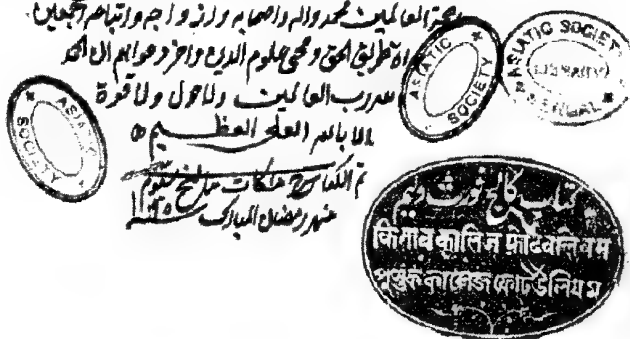 رحمة العالمين محمد واله واصحابه وازواجه واتباعه اجمعين
الطريق الحق ومحيى علوم الدين واخر دعواهم ان الحمد
لله رب العالمين ولا حول ولا قوة
الا بالله العلى العظيم
تم الكتاب بتاريخ سوم
شهر رمضان المبارك
ASIATIC SOCIETY
ASIATIC SOCIETY
LIBRARY
BENGAL
ASIATIC SOCIETY
كتاب كالج فورت وليم
किताब कालिज फोर्ट वलियम
পুস্তক কালেজ ফোর্ট উলিয়ম